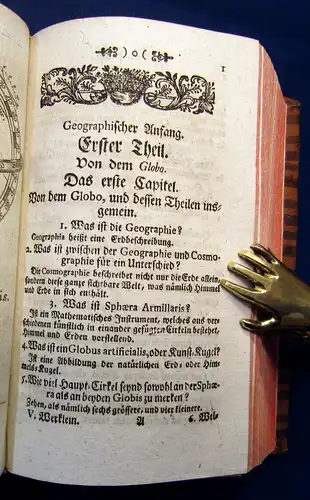 )o(
1
Geographischer Anfang.
Erster Theil.
Von dem Globo.
Das erste Capitel.
Von dem Globo, und dessen Theilen ins-
gemein.
1. Was ist die Geographie?
Geographia heißt eine Erdbeschreibung.
2. Was ist zwischen der Geographie und Cosmo-
graphie für ein Unterschied?
Die Cosmographie beschreibet nicht nur die Erde allein,
sondern diese ganze sichtbare Welt, was nämlich Himmel
und Erde in sich enthält.
3. Was ist Sphæra Armillaris?
Ist ein Mathematisches Instrument, welches aus ver-
schiedenen künstlich in einander gefügten Cirkeln bestehet,
Himmel und Erden vorstellend.
4. Was ist ein Globus artificialis, oder Kunst-Kugel?
Ist eine Abbildung der natürlichen Erd- oder Him-
mels-Kugel.
5. Wie viel Haupt-Cirkel seynd sowohl an der Sphæ-
ra als an beyden Globis zu merken?
Zehen, als nämlich sechs grössere, und vier kleinere.
V. Werklein. A 6. Wel-